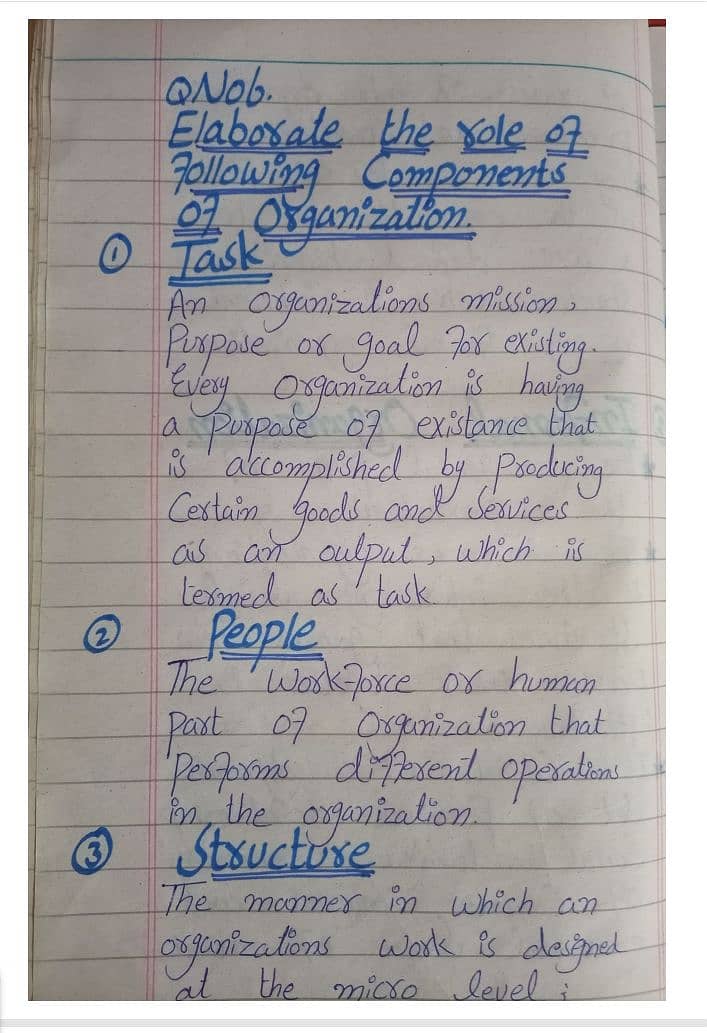 QNo6.
Elaborate the role of
following Components
of Organization.
① Task
An Organizations mission,
Purpose or goal for existing.
Every Organization is having
a Purpose of existance that
is accomplished by Producing
Certain goods and Services
as an output, which is
termed as task.
② People
The Workforce or human
part of Organization that
Performs different operations
in the organization.
③ Structure
The manner in which an
organizations work is designed
at the micro level ;